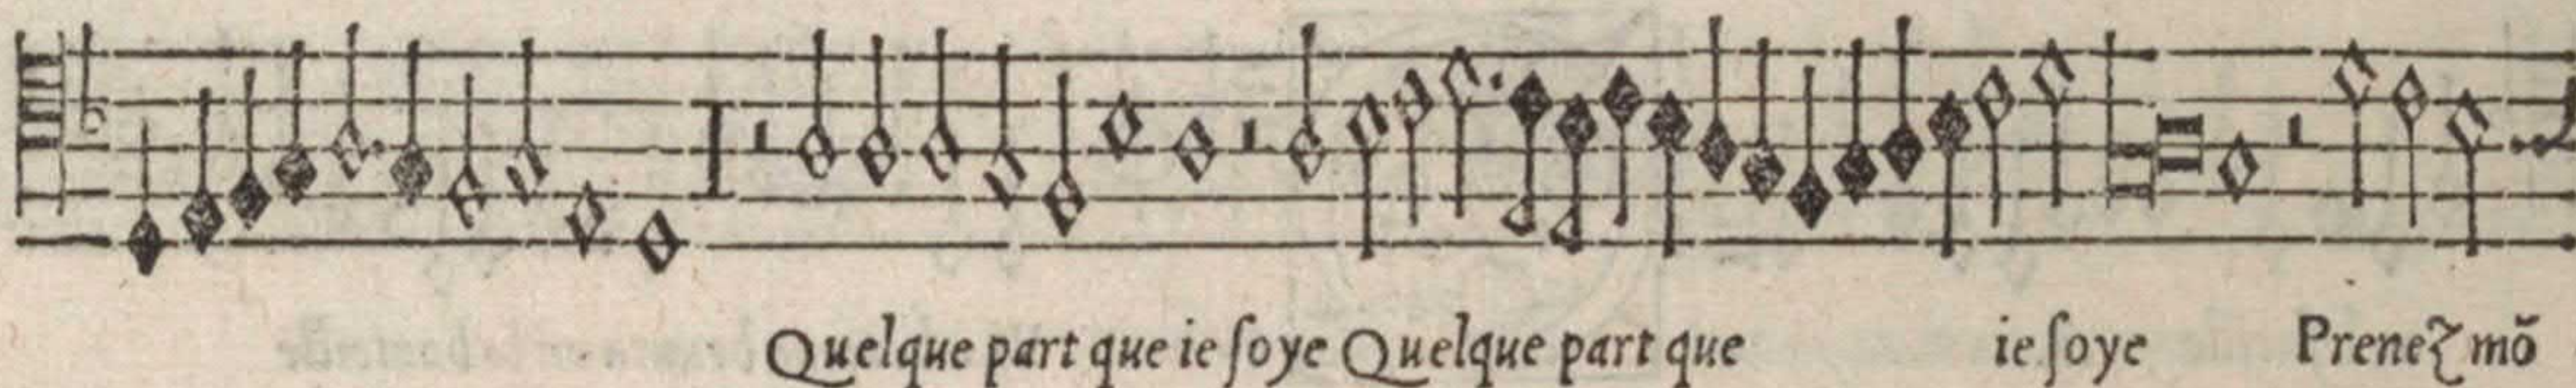 Quelque part que ie ſoye Quelque part que ie ſoye Prenez mõ